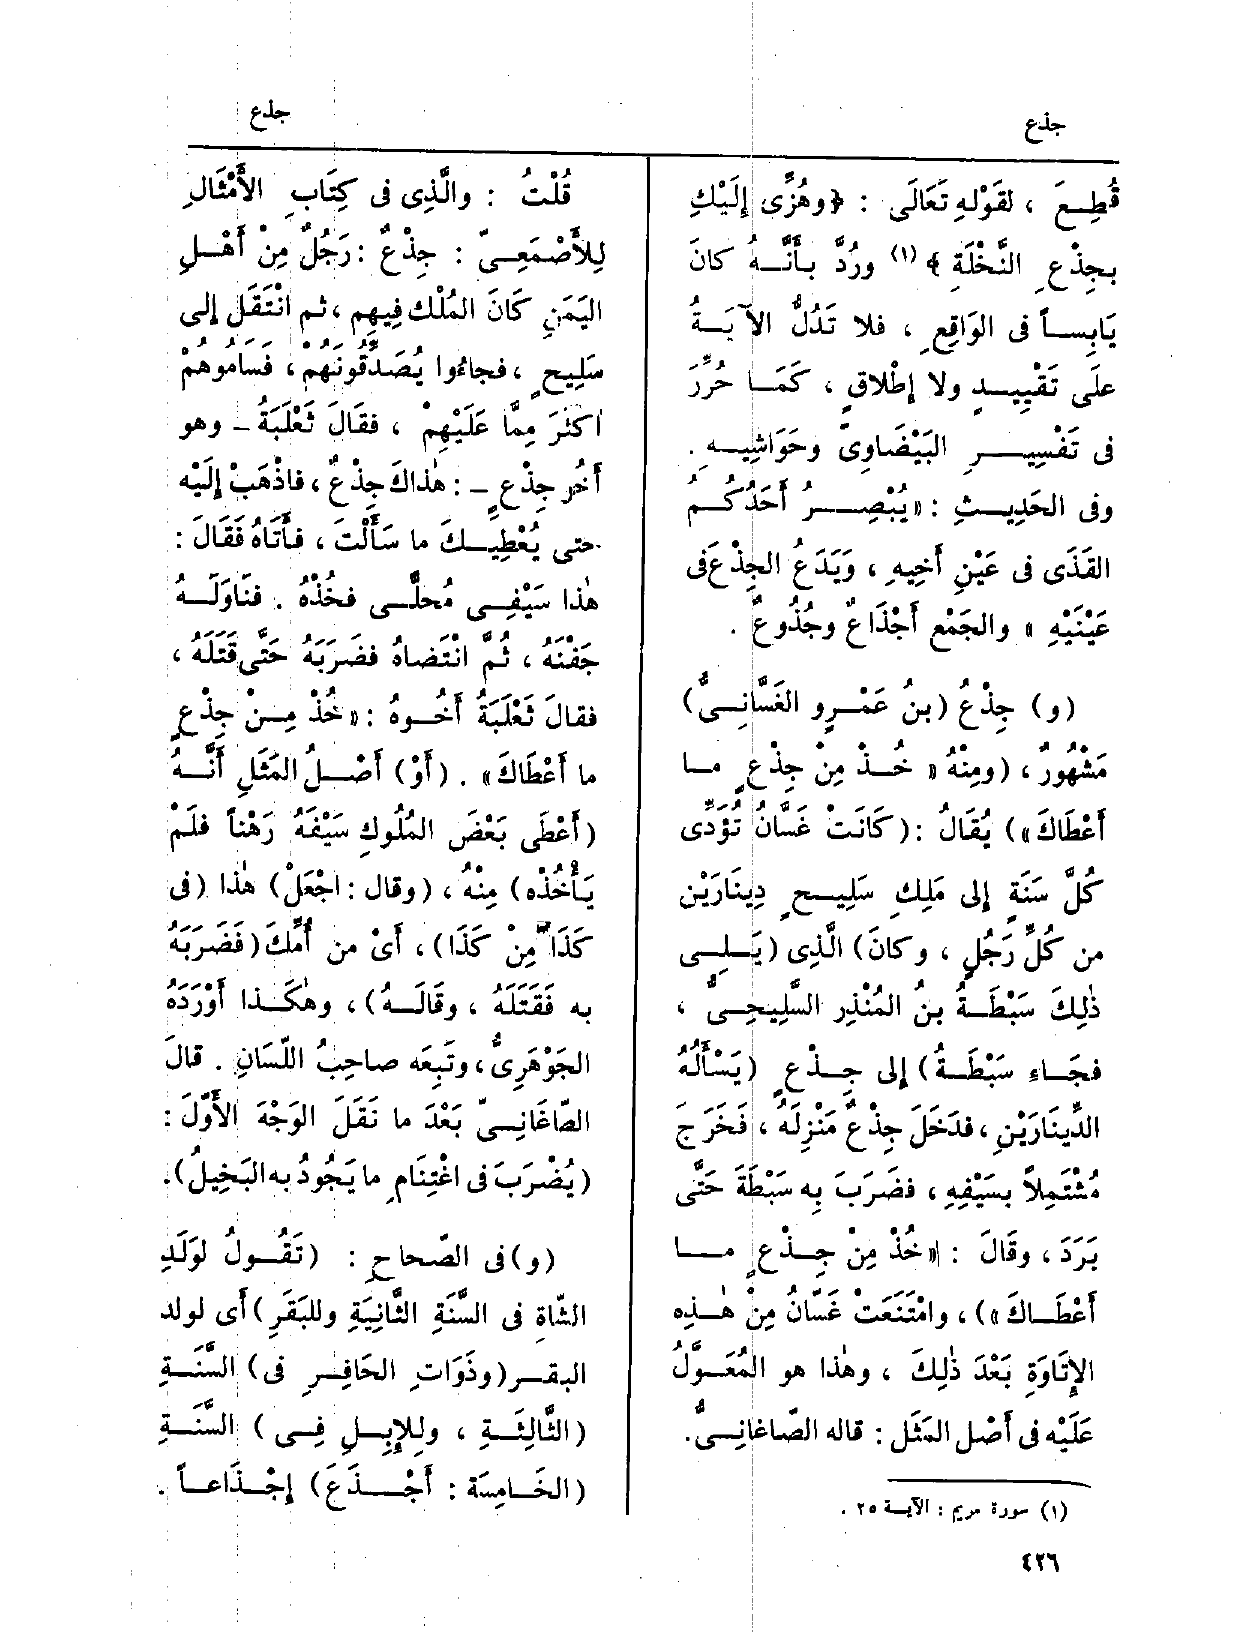 جذع
جذع
قُطِعَ ، لقَوْلِهِ تَعَالَى : ﴿وهُزِّى إِلَيْكِ
بِجِذْعِ النَّخْلَةِ ﴾ (١) ورُدَّ بأَنَّهُ كانَ
يَابِساً فى الوَاقِعِ ، فلا تَدُلُّ الآيَةُ
علَى تَقْيِيدٍ ولا إِطْلاقٍ ، كَمَا حُرِّرَ
فى تَفْسِيرِ البَيْضَاوِىِّ وحَوَاشِيهِ .
وفى الحَدِيثِ : «يُبْصِرُ أَحَدُكُم
القَذَى فى عَيْنِ أَخِيهِ ، ويَدَعُ الجِذْعَ فى
عَيْنَيْهِ » والجَمْع أَجْذَاعٌ وجُذُوعٌ .
(و) جِذْعُ (بنُ عَمْرٍو الغَسّانِىُّ)
مَشْهُورٌ ، (ومِنْهُ « خُذْ مِنْ جِذْعٍ ما
أَعْطَاكَ ») يُقَالُ : (كَانَتْ غَسَّانُ تُؤَدِّى
كُلَّ سَنَةٍ إِلى مَلِكِ سَلِيحٍ دِينَارَيْنِ
من كُلِّ رَجُلٍ ، وكانَ) الَّذِى (يَلِى
ذٰلِكَ سَبْطَةُ بنُ المُنْذِرِ السَّلِيحِىُّ ،
فجَاءَ سَبْطَةُ) إِلى جِذْعٍ (يَسْأَلُهُ
الدِّينَارَيْنِ ، فدَخَلَ جِذْعٌ مَنْزِلَهُ ، فَخَرَجَ
مُشْتَمِلاً بسَيْفِهِ ، فضَرَبَ بِه سَبْطَةَ حَتَّى
بَرَدَ ، وقَالَ : «خُذْ مِنْ جِذْعٍ ما
أَعْطَاكَ ») ، وامْتَنَعَتْ غَسّانُ مِنْ هٰذِه
الإِتَاوَةِ بَعْدَ ذٰلِكَ ، وهٰذا هو المُعَوَّلُ
عَلَيْه فى أَصْلِ المَثَل : قاله الصّاغَانِىُّ .
(١) سورة مريم : الآية ٢٥ .
٤٢٦
قُلْتُ : والَّذِى فى كِتَابِ الأَمْثَالِ
لِلأَصْمَعِىِّ : جِذْعٌ : رَجُلٌ مِنْ أَهْلِ
اليَمَنِ كَانَ المُلْك فِيهِم ، ثم انْتَقَلَ إلى
سَلِيحٍ ، فجاءُوا يُصَدِّقُونَهُمْ ، فَسَامُوهُم
أَكثَرَ مِمَّا عَلَيْهِمْ ، فقَالَ ثَعْلَبَةُ - وهو
أَخُر جِذْعٍ - : هٰذاكَ جِذْعٌ ، فاذْهَبْ إِلَيْه
حتى يُعْطِيكَ ما سَأَلْتَ ، فأَتَاهُ فَقَالَ :
هٰذا سَيْفِى مُحلًّى فخُذْهُ . فنَاوَلَهُ
جَفْنَهُ ، ثُمَّ انْتَضاهُ فضَرَبَهُ حَتَّى قَتَلَهُ ،
فقالَ ثَعْلَبَةُ أَخُوهُ : «خُذْ مِن جِذْعٍ
ما أَعْطَاكَ» . (أَوْ) أَصْلُ المَثَلِ أَنَّهُ
(أَعْطَى بَعْضَ المُلُوكِ سَيْفَهُ رَهْناً فلَمْ
يَأْخُذْه) مِنْهُ ، (وقال : اجْعَلْ) هٰذا (فى
كَذَا مِنْ كَذَا) ، أَىْ من أُمِّكَ (فَضَرَبَهُ
به فَقَتَلَهُ ، وقَالَهُ) ، وهٰكَذا أَوْرَدَهُ
الجَوْهَرِىُّ ، وتَبِعَه صاحِبُ اللِّسَانِ . قالَ
الصّاغَانِىّ بَعْدَ ما نَقَلَ الوَجْهَ الأَوَّلَ :
(يُضْرَبَ فى اغْتِنَامِ ما يَجُودُ به البَخِيلُ).
(و) فى الصّحاحِ : (تَقُولُ لوَلَدِ
الشّاةِ فى السَّنَةِ الثَّانِيَةِ وللبَقَرِ) أَى لولد
البقر (وذَوَاتِ الحَافِرِ فى) السَّنَةِ
(الثّالِثَةِ ، ولِلإِبِلِ فِى ) السَّنَةِ
(الخَامِسَة : أَجْذَعَ) إِجْذَاعاً .